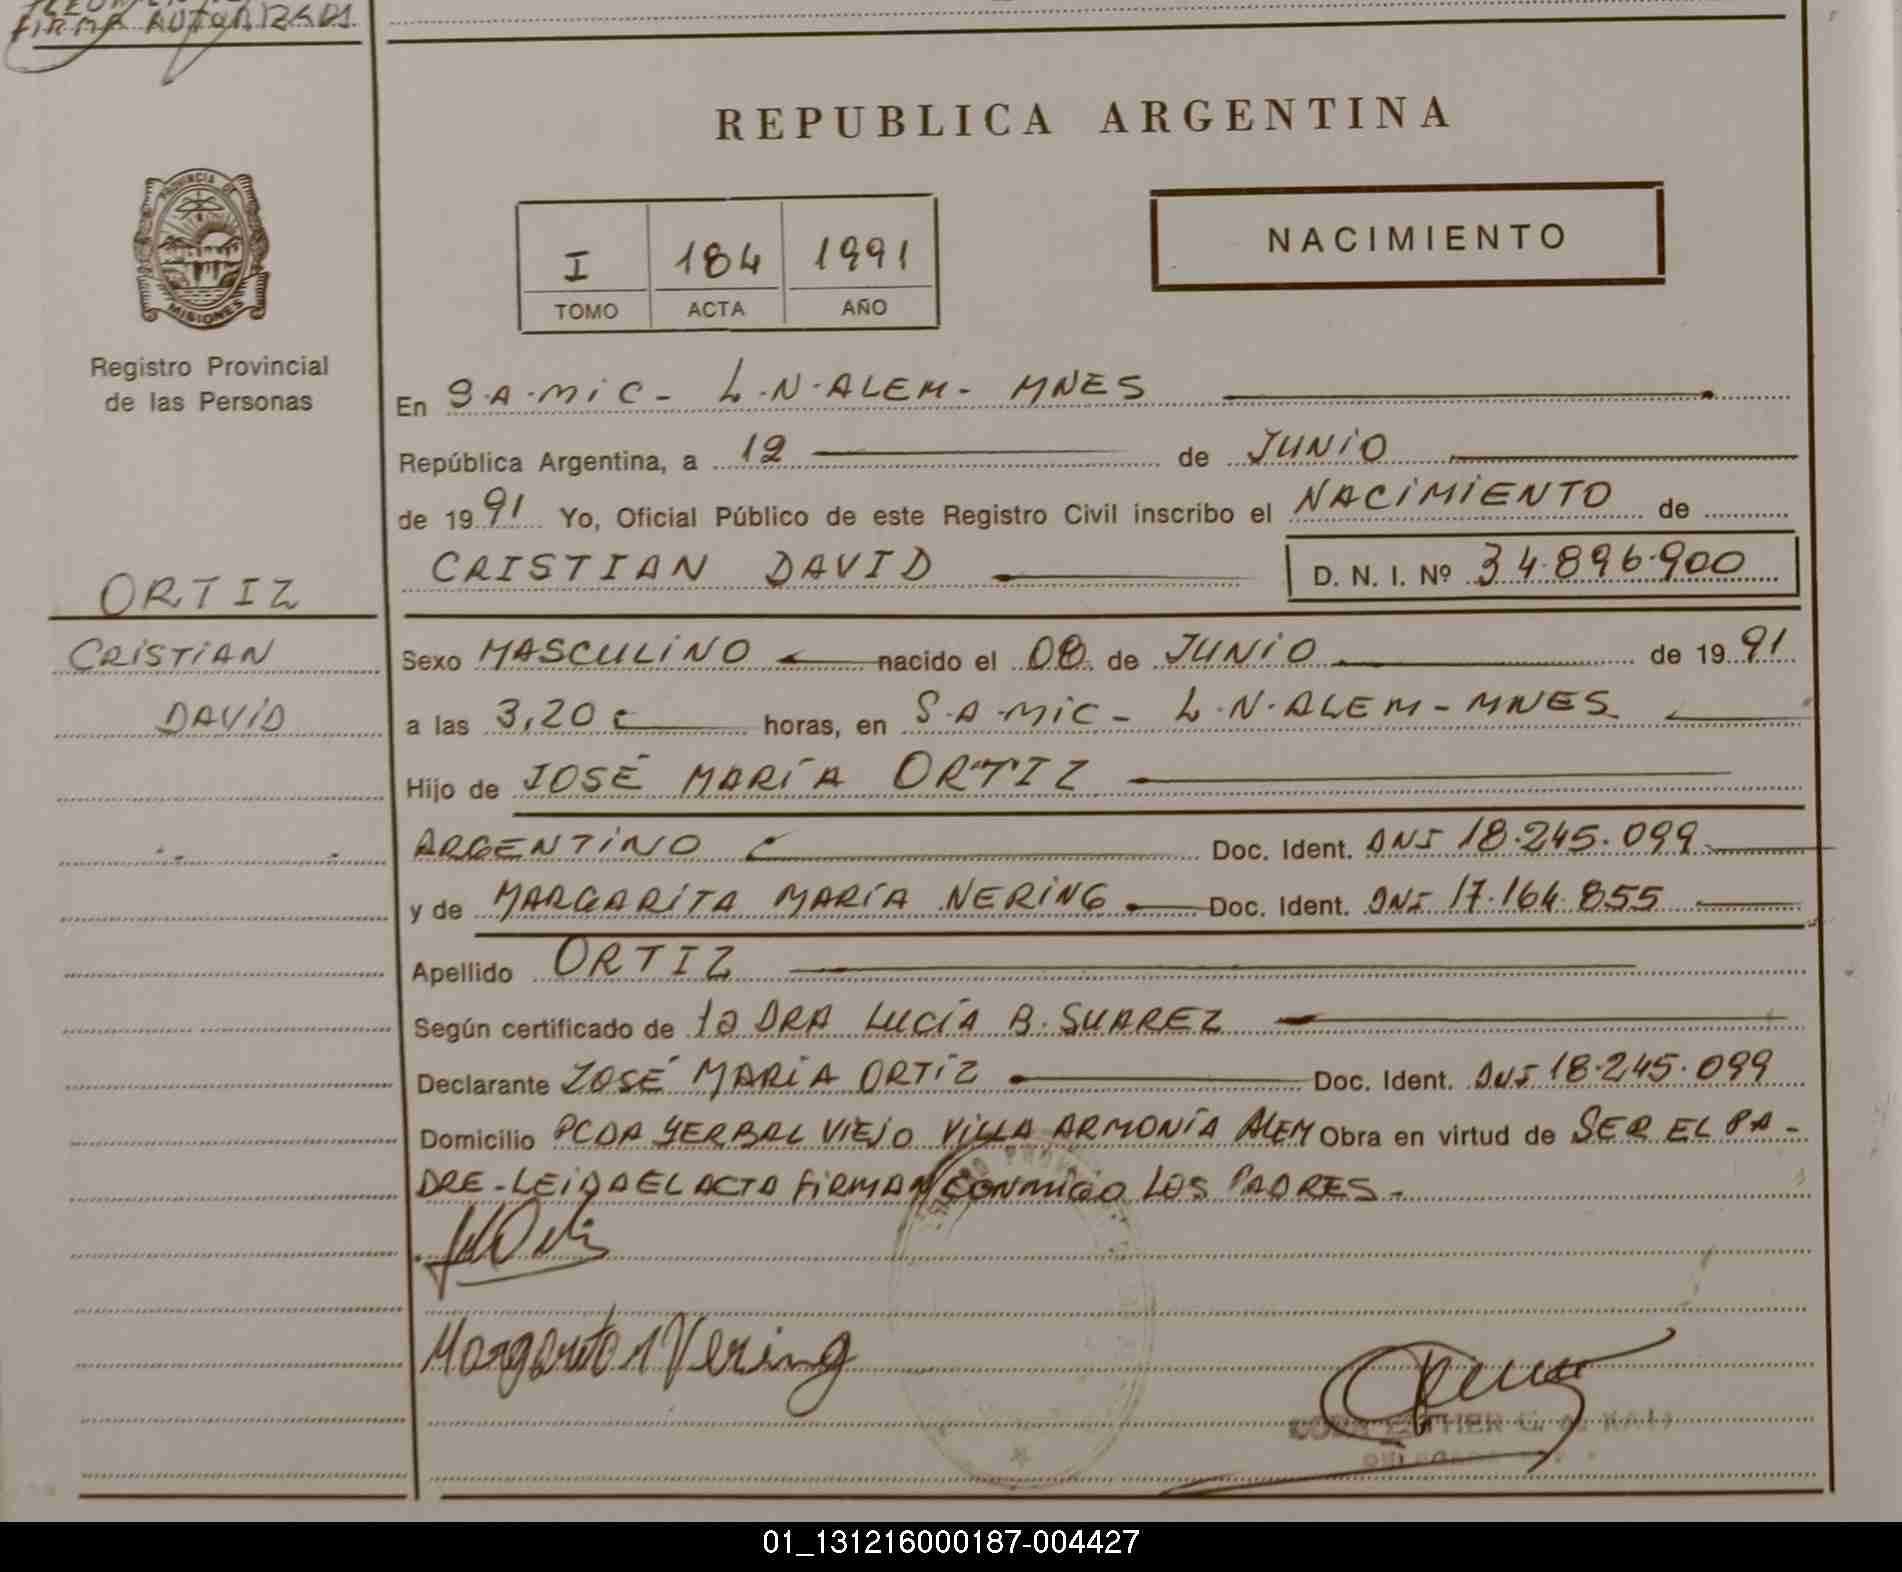 FIRMA AUTORIZADA
REPUBLICA ARGENTINA
PROVINCIA DE
MISIONES
Registro Provincial
de las Personas
I 184 1991
TOMO ACTA AÑO
NACIMIENTO
En S.A.MIC - L.N.ALEM - MNES
República Argentina, a 12 de JUNIO
de 19 91 Yo, Oficial Público de este Registro Civil inscribo el NACIMIENTO de
CRISTIAN DAVID D. N. I. Nº 34.896.900
ORTIZ
CRISTIAN
DAVID
Sexo MASCULINO nacido el 08 de JUNIO de 19 91
a las 3,20 horas, en S.A.MIC - L.N.ALEM - MNES
Hijo de JOSÉ MARÍA ORTIZ
ARGENTINO Doc. Ident. DNI 18.245.099
y de MARGARITA MARÍA NERING Doc. Ident. DNI 17.164.855
Apellido ORTIZ
Según certificado de la DRA LUCÍA B. SUAREZ
Declarante JOSÉ MARÍA ORTÍZ Doc. Ident. DNI 18.245.099
Domicilio PCDA YERBAL VIEJO VILLA ARMONÍA ALEM Obra en virtud de SER EL PA-
DRE - LEIDA EL ACTA FIRMAN CONMIGO LOS PADRES.-
Margarita M Nering
ESTHER
01_131216000187-004427